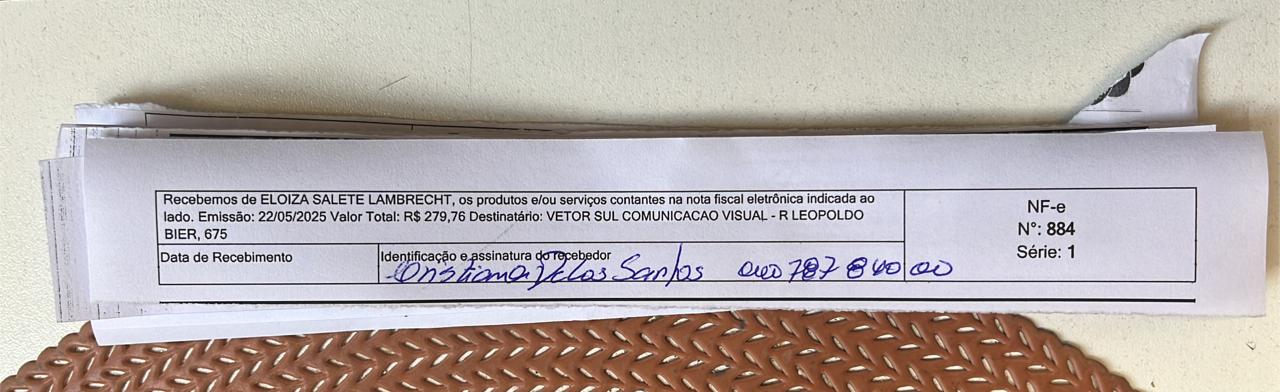 Recebemos de ELOIZA SALETE LAMBRECHT, os produtos e/ou serviços contantes na nota fiscal eletrônica indicada ao
lado. Emissão: 22/05/2025 Valor Total: R$ 279,76 Destinatário: VETOR SUL COMUNICACAO VISUAL - R LEOPOLDO
BIER, 675
NF-e
N°: 884
Série: 1
Data de Recebimento
Identificação e assinatura do recebedor
Cristiana Santos 787 840 00